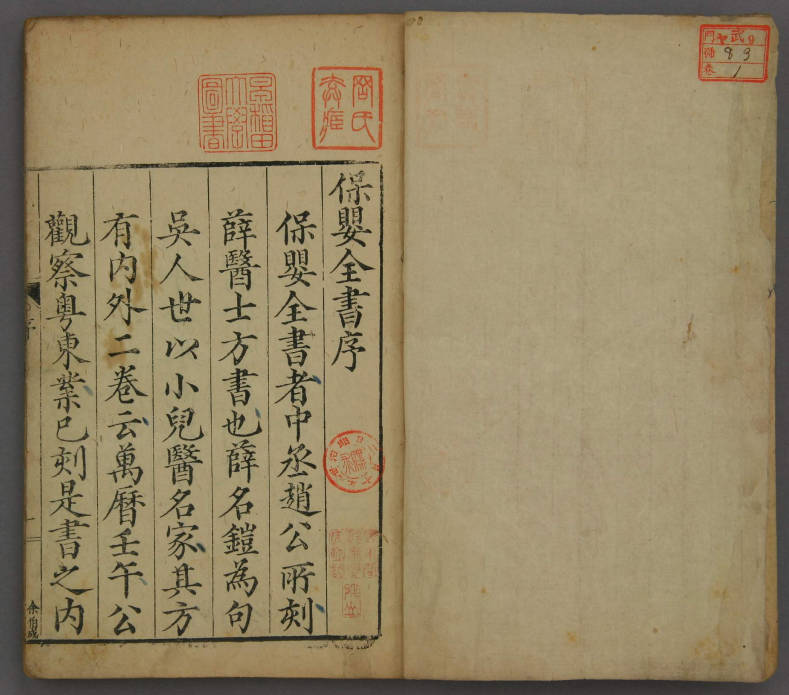 保嬰全書序
保嬰全書者中丞趙公所刻
薛醫士方書也薛名鎧為句
吳人世以小兒醫名家其方
有内外二卷云萬曆壬午公
觀察粤東業已刻是書之内
序
余伯成
早稻田大學圖書
門
武9
號
83
卷
1